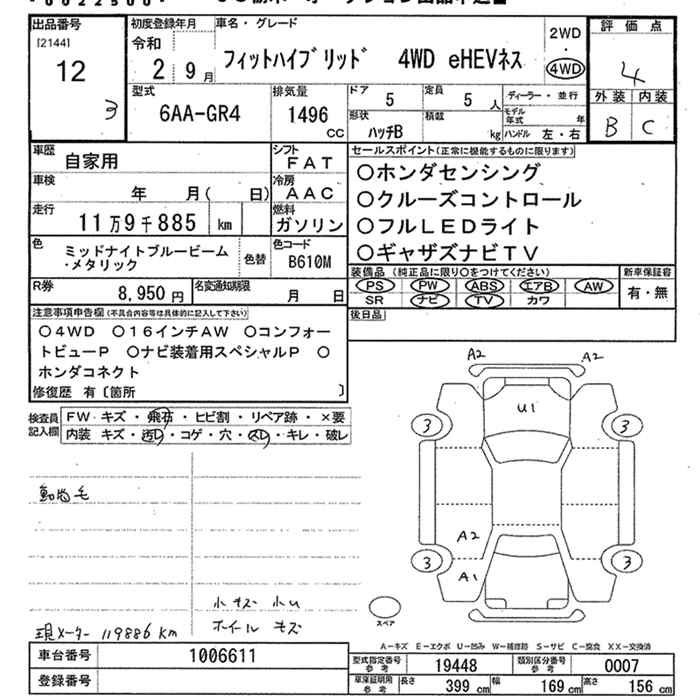 出品番号
[2144]
12
3
初度登録年月
令和
2 9月
車名・グレード
フィットハイブリッド 4WD eHEVネス
2WD
・
4WD
評価点
4
外装 内装
B C
型式
6AA-GR4
排気量
1496
CC
ドア
5
定員
5人
形状
ハッチB
積載
kg
ディーラー・並行
モデル年式 年
ハンドル 左・右
車歴
自家用
シフト
FAT
車検
年 月( 日)
冷房
AAC
走行
11万9千885 km
燃料
ガソリン
色
ミッドナイトブルービーム
・メタリック
色替
色コード
B610M
R券
8,950円
名変通知期限
月 日
セールスポイント(正常に機能するものに限ります)
○ホンダセンシング
○クルーズコントロール
○フルLEDライト
○ギャザズナビTV
装備品(純正品に限り○をつけてください)
PS PW ABS エアB AW
SR ナビ TV カワ
新車保証書
有・無
後日品
注意事項申告欄(不具合内容は具体的に記入して下さい)
○4WD ○16インチAW ○コンフォー
トビューP ○ナビ装着用スペシャルP ○
ホンダコネクト
修復歴 有〔箇所 〕
検査員
記入欄
FW キズ・飛石・ヒビ割・リペア跡・×要
内装 キズ・汚レ・コゲ・穴・スレ・キレ・破レ
動物毛
小キズ 小U
ホイールキズ
現メーター 119886 km
A2 A2
U1
3 3
A2
3 3
A1
スペア
A－キズ E－エクボ U－凹み W－補修跡 S－サビ C－腐食 XX－交換済
車台番号
1006611
登録番号
型式指定番号
参考
19448
類別区分番号
参考
0007
車庫証明用
参考
長さ 399 cm
幅 169 cm
高さ 156 cm